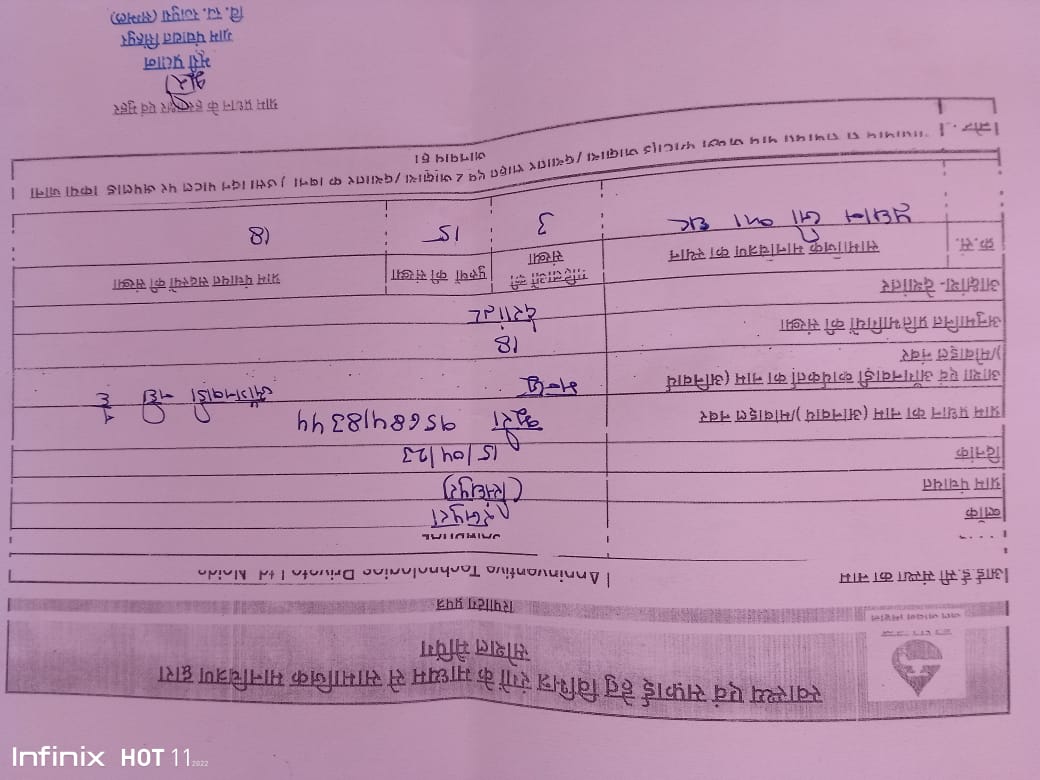 स्वास्थ्य एवं सफ़ाई हेतु विभिन्न रंगों के माध्यम से सामाजिक मानचित्रण द्वारा
सोशल मैपिंग
रिपोर्टिंग प्रपत्र
आई.ई.सी संस्था का नाम Anninventive Technologies Private Ltd Noida
ब्लॉक
ग्राम पंचायत
दिनांक 15/04/23
ग्राम प्रधान का नाम (अनिवार्य)/मोबाइल नंबर भूरी 9568418344
आशा एवं आँगनवाड़ी कार्यकर्ता का नाम (अनिवार्य)/मोबाइल नंबर आँगनवाडी नही है
अनुमानित प्रतिभागियों की संख्या 18
अक्षांश- देशांतर
क्र.सं. सामाजिक मानचित्रण का स्थान महिलाओं की संख्या पुरुषों की संख्या ग्राम पंचायत सदस्यों की संख्या
प्रधान जी का घर 3 15 18
नोट
अनिवार्य है।
ग्राम प्रधान के हस्ताक्षर एवं मुहर
भूरी
भूरी प्रधान
ग्राम पंचायत सिंहपुर
वि. ख. रजपुरा (सम्भल)
Infinix HOT 11 2022